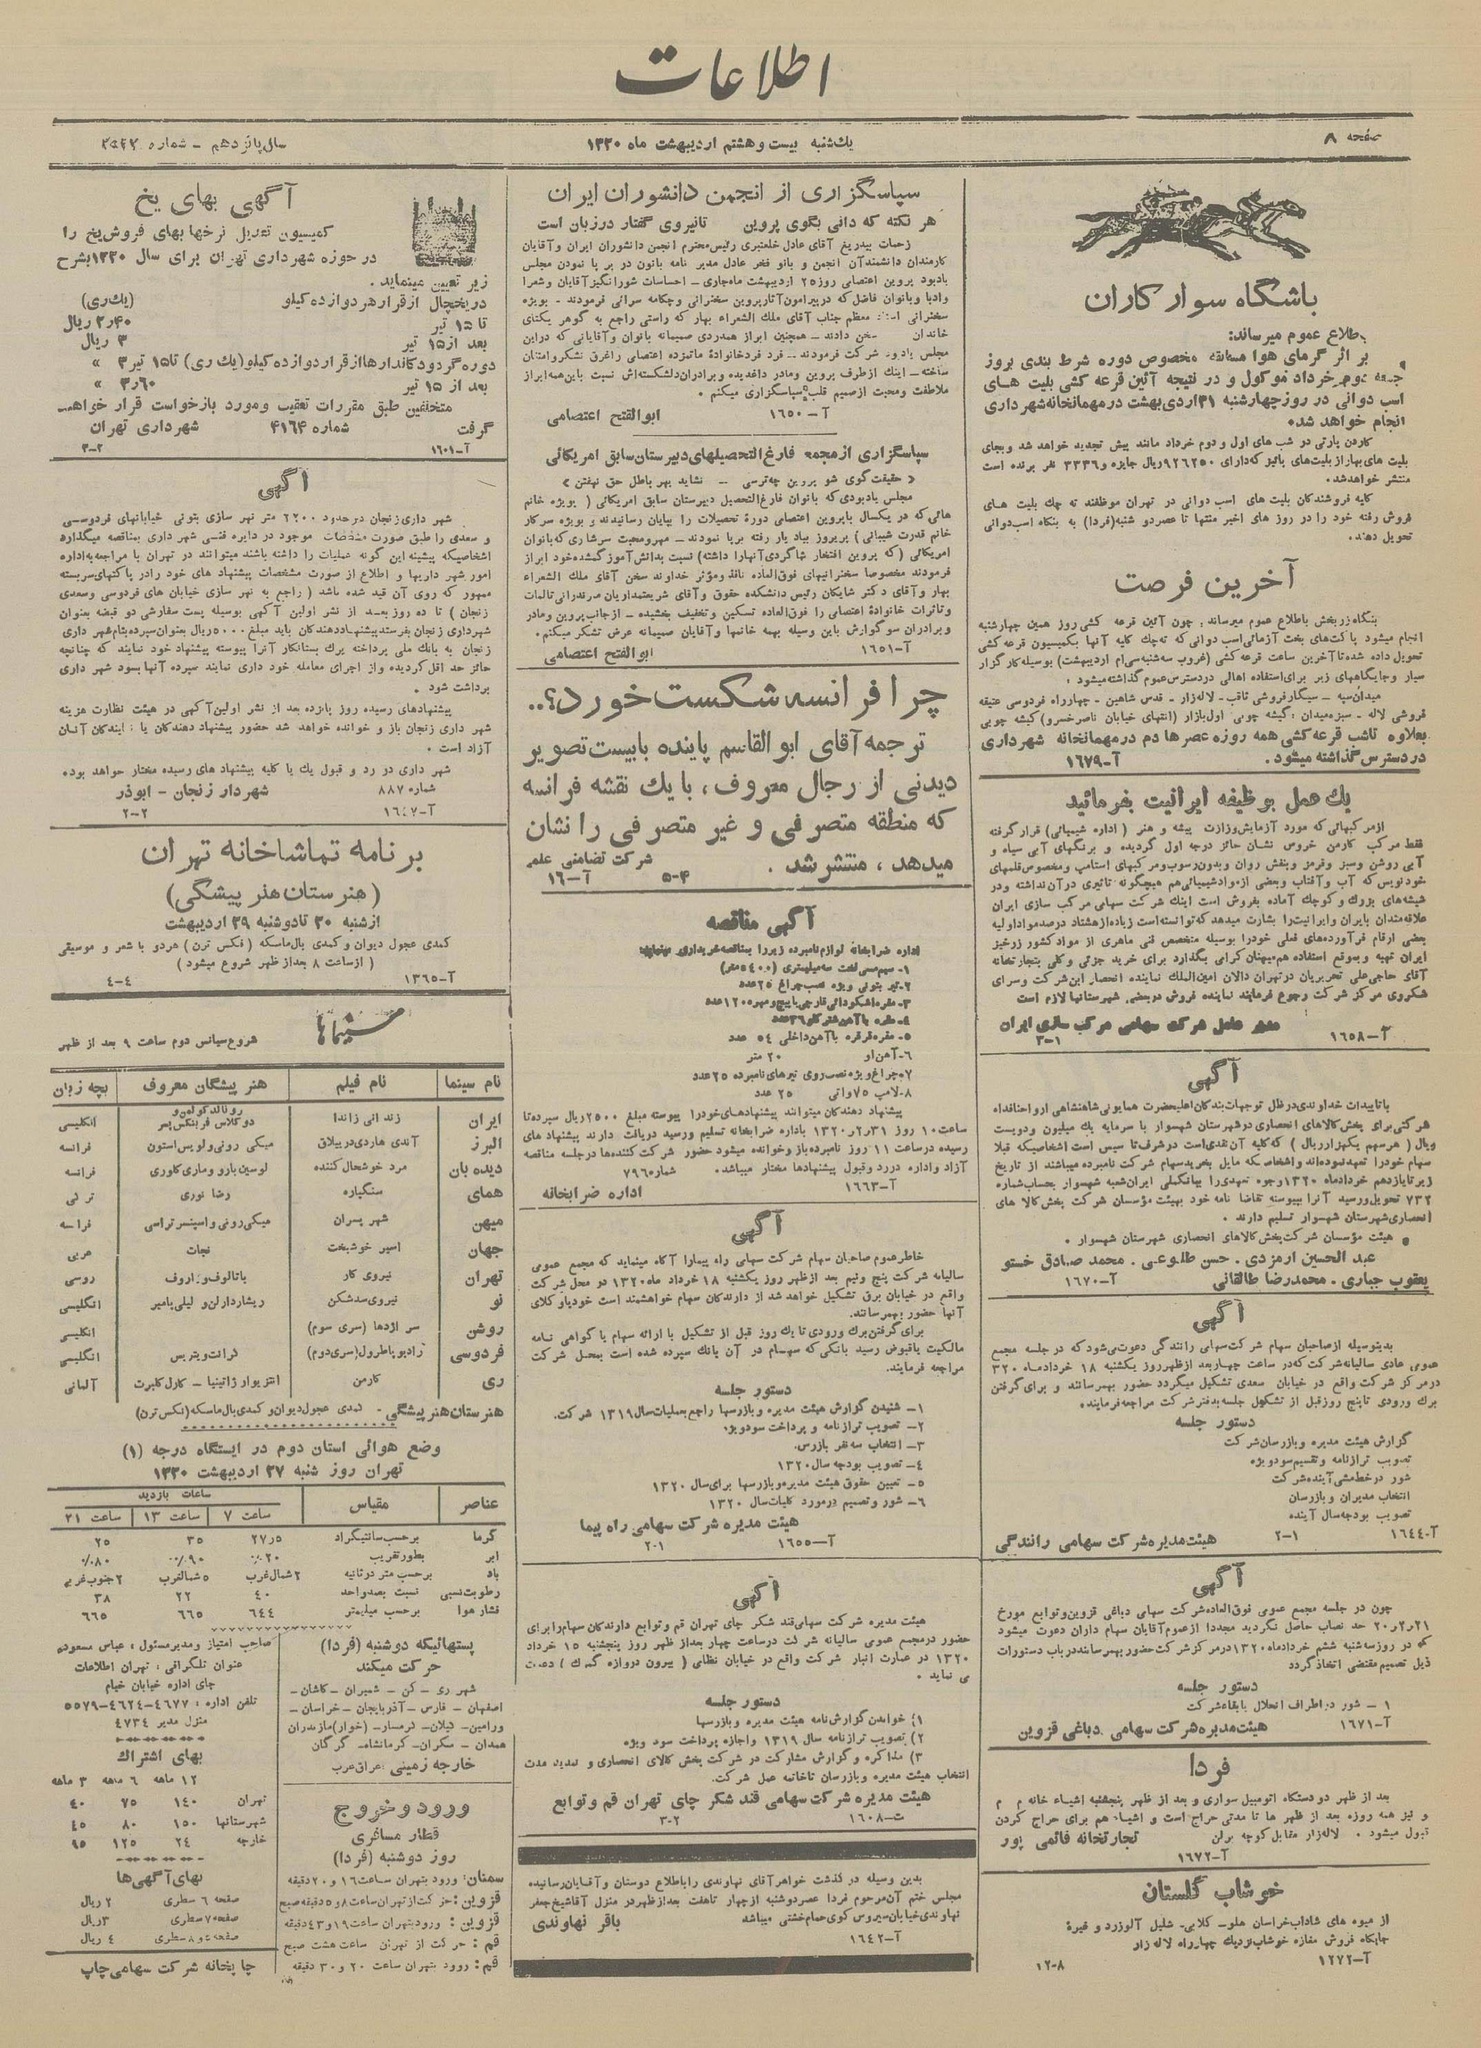 اطلاعات
صفحه ۸
یك‌شنبه بیست و هشتم اردیبهشت ماه ۱۳۲۰
سال پانزدهم - شماره
باشگاه سوار کاران
باطلاع عموم میرساند:
بر اثر گرمای هوا مسابقه مخصوص دوره شرط بندی بروز
جمعه دوم خرداد موکول و در نتیجه آئین قرعه کشی بلیت های
اسب دوانی در روز چهارشنبه ۳۱ اردی‌بهشت در مهمانخانه شهرداری
انجام خواهد شد.
کاردن پارتی در شب های اول و دوم خرداد مانند پیش تجدید خواهد شد و بجای
بلیت های بهار از بلیت‌های پائیز که دارای ۹۲۶۲۵۰ ریال جایزه و ۳۳۳۶ نفر برنده است
منتشر خواهد شد.
کلیه فروشندگان بلیت های اسب دوانی در تهران موظفند ته چك بلیت های
فروش رفته خود را در روز های اخیر منتها تا عصر دو شنبه (فردا) به بنگاه اسب‌دوانی
تحویل دهند.
آخرین فرصت
بنگاه زربخش باطلاع عموم میرساند، چون آئین قرعه کشی روز همین چهارشنبه
انجام میشود پاکت‌های بخت آزمائی اسب دوانی که ته چك کلیه آنها بکمیسیون قرعه کشی
تحویل داده شده تا آخرین ساعت قرعه کشی (غروب سه‌شنبه سی‌ام اردیبهشت) بوسیله کارگزار
سیار و جایگاههای زیر برای استفاده اهالی در دسترس عموم گذاشته میشود:
میدان سپه - سیگار فروشی ثاقب - لاله‌زار - قدس شاهین - چهارراه فردوسی عتیقه
فروشی لاله - سبزه میدان: گیشه چوبی اول بازار (انتهای خیابان ناصرخسرو) گیشه چوبی
بعلاوه تاشب قرعه کشی همه روزه عصرها دم در مهمانخانه شهرداری
در دسترس گذاشته میشود. آ-۱۶۷۹
یك عمل بوظیفه ایرانیت بفرمائید
از مرکبهائی که مورد آزمایش وزارت پیشه و هنر (اداره شیمیائی) قرار گرفته
فقط مرکب کارمن خروس نشان حائز درجه اول گردیده و برنگهای آبی سیاه و
آبی روشن و سبز و قرمز و بنفش روان و بدون رسوب و مرکبهای استامپ و مخصوص قلمهای
خودنویس که آب و آفتاب و بعضی از مواد شیمیائی هم هیچگونه تاثیری در آن نداشته و در
شیشه‌های بزرك و کوچك آماده بفروش است اینك شرکت سهامی مرکب سازی ایران
علاقه‌مندان بایران و ایرانیت را بشارت میدهد که توانسته است زیاده از هشتاد درصد مواد اولیه
بعضی ارقام فرآورده‌های فعلی خود را بوسیله متخصص فنی ماهری از مواد کشور زرخیز
ایران تهیه و بموقع استفاده هم‌میهنان گرامی بگذارد برای خرید جزئی و کلی بتجارتخانه
آقای حاجی‌علی تحریریان در تهران دالان امین‌الملك نماینده انحصار این شرکت و سرای
شکروی مرکز شرکت رجوع فرمایند نماینده فروش در بعضی شهرستانها لازم است
مدیر عامل شرکت سهامی مرکب سازی ایران
آ-۱۶۵۸ ۳-۱
آگهی
با تاییدات خداوندی در ظل توجهات بندگان اعلیحضرت همایونی شاهنشاهی ارواحنافداه
شرکتی برای پخش کالاهای انحصاری در شهرستان شهسوار با سرمایه یك میلیون و دویست
ریال (هر سهم یکهزار ریال) که کلیه آن نقدی است در شرف تاسیس است اشخاصیکه قبلا
سهام خود را تعهد نموده‌اند و اشخاصیکه مایل بخرید سهام شرکت نامبرده میباشند از تاریخ
زیر تا یازدهم خرداد ماه ۱۳۲۰ وجوه تعهدی را ببانك‌ملی ایران شعبه شهسوار بحساب شماره
۷۳۲ تحویل و رسید آنرا بپیوست تقاضا نامه خود بهیئت مؤسسان شرکت پخش کالا های
انحصاری شهرستان شهسوار تسلیم دارند.
هیئت مؤسسان شرکت پخش کالاهای انحصاری شهرستان شهسوار.
عبدالحسین ارمزدی. حسن طلوعی. محمد صادق خستو
یعقوب جباری. محمدرضا طالقانی آ-۱۶۷۰
آگهی
بدینوسیله از صاحبان سهام شرکت سهامی رانندگی دعوت میشود که در جلسه مجمع
عمومی عادی سالیانه شرکت که در ساعت چهار بعد از ظهر روز یکشنبه ۱۸ خرداد ماه ۳۲۰
در مرکز شرکت واقع در خیابان سعدی تشکیل میگردد حضور بهمرسانند و برای گرفتن
برك ورودی تا پنج روز قبل از تشکیل جلسه بدفتر شرکت مراجعه فرمایند.
دستور جلسه
گزارش هیئت مدیره و بازرسان شرکت
تصویب ترازنامه و تقسیم سود ویژه
شور در خط مشی آینده شرکت
انتخاب مدیران و بازرسان
تصویب بودجه سال آینده
آ-۱۶۴۴ ۲-۱ هیئت مدیره شرکت سهامی رانندگی
آگهی
چون در جلسه مجمع عمومی فوق‌العاده شرکت سهامی دباغی قزوین و توابع مورخ
۲۰ر۲ر۲۱ حد نصاب حاصل نگردید مجددا از عموم آقایان سهام داران دعوت میشود
که در روز سه شنبه ششم خرداد ماه ۱۳۲۰ در مرکز شرکت حضور بهمرسانند در باب دستورات
ذیل تصمیم مقتضی اتخاذ گردد
دستور جلسه
۱ - شور در اطراف انحلال یا بقاء شرکت
آ-۱۶۷۱ هیئت مدیره شرکت سهامی دباغی قزوین
فردا
بعد از ظهر دو دستگاه اتومبیل سواری و بعد از ظهر پنجشنبه اشیاء خانه م م
و نیز همه روزه بعد از ظهر ها تا مدتی حراج است و اشیاء هم برای حراج کردن
قبول میشود. لاله‌زار مقابل کوچه برلن تجارتخانه قائمی پور
آ-۱۶۷۲
خوشاب گلستان
از میوه های شاداب خراسان هلو - گلابی - شلیل آلوزرد و غیره
جایگاه فروش مغازه خوشاب نزدیك چهارراه لاله زار
آ-۱۲۷۲ ۱۲-۸
سپاسگزاری از انجمن دانشوران ایران
هر نکته که دانی بگوی پروین تا نیروی گفتار در زبان است
زحمات بیدریغ آقای عادل خلعتبری رئیس محترم انجمن دانشوران ایران و آقایان
کارمندان دانشمند آن انجمن و بانو فخر عادل مدیر نامه بانوان در بر پا نمودن مجلس
یادبود پروین اعتصامی روز ۲۵ اردیبهشت ماه جاری - احساسات شورانگیز آقایان و شعرا
و ادبا و بانوان فاضل که در پیرامون آثار پروین سخنرانی و چکامه سرائی فرمودند - بویژه
سخنرانی استاد معظم جناب آقای ملك الشعراء بهار که راستی راجع به گوهر یکتای
خاندان سخن دادند - همچنین ابراز همدردی صمیمانه بانوان و آقایانی که در این
مجلس یادبود شرکت فرمودند.. فرد فرد خانوادهٔ ماتمزده اعتصامی را غرق تشکر و امتنان
ساخته - اینك از طرف پروین و مادر داغدیده و برادران دلشکسته‌اش نسبت باین همه ابراز
ملاطفت و محبت از صمیم قلب سپاسگزاری میکنم.
آ-۱۶۵۰ ابوالفتح اعتصامی
سپاسگزاری از مجمع فارغ‌التحصیلهای دبیرستان سابق امریکائی
«حقیقت گوی شو پروین چه ترسی - نشاید بهر باطل حق نهفتن»
مجلس یادبودی که بانوان فارغ التحصیل دبیرستان سابق امریکائی (بویژه خانم
هائی که در یکسال با پروین اعتصامی دورهٔ تحصیلات را بپایان رسانیدند و بویژه سرکار
خانم قدرت شیبانی) پریروز بیاد یار رفته برپا نمودند - مهر و محبت سرشاری که بانوان
امریکائی (که پروین افتخار شاگردی آنها را داشته) نسبت بدانش‌آموز گمشده خود ابراز
فرمودند مخصوصا سخنرانیهای فوق‌العاده نافذ و مؤثر خداوند سخن آقای ملك الشعراء
بهار و آقای دکتر شایگان رئیس دانشکده حقوق و آقای شریعتمداریان مرقدرانی تالمات
و تاثرات خانوادهٔ اعتصامی را فوق‌العاده تسکین و تخفیف بخشیده - از جانب پروین و مادر
و برادران سوگوارش باین وسیله بهمه خانمها و آقایان صمیمانه عرض تشکر میکنم.
آ-۱۶۵۱ ابوالفتح اعتصامی
چرا فرانسه شکست خورد؟..
ترجمه آقای ابوالقاسم پاینده با بیست تصویر
دیدنی از رجال معروف، با یك نقشه فرانسه
که منطقه متصرفی و غیر متصرفی را نشان
میدهد، منتشر شد.
شرکت تضامنی علم
۵-۴ آ-۱۶
آگهی مناقصه
اداره ضرابخانه لوازم نامبرده زیر را بمناقصه خریداری مینماید
۱- سیم مسی لخت سه میلیمتری (۵۴۰۰ متر)
۲- تیر بتونی ویژه نصب چراغ ۲۵ عدد
۳- مقره اشکودائی قارچی با پیچ و مهره ۱۲۰ عدد
۴- مقره با آهن شترگلو ۳۶ عدد
۵- مقره قرقره با آهن داخلی ۵۴ عدد
۶- آهن او ۲۰ متر
۷- چراغ ویژه نصب روی تیرهای نامبرده ۲۵ عدد
۸- لامپ ۷۵ واتی ۲۵ عدد
پیشنهاد دهندگان میتوانند پیشنهادهای خود را پیوسته مبلغ ۲۵۰۰ ریال سپرده تا
ساعت ۱۰ روز ۳۱ر۲ر۱۳۲۰ باداره ضرابخانه تسلیم و رسید دریافت دارند پیشنهاد های
رسیده در ساعت ۱۱ روز نامبرده باز و خوانده میشود حضور شرکت کننده‌ها در جلسه مناقصه
آزاد و اداره در رد و قبول پیشنهادها مختار میباشد. شماره ۷۹۶
آ-۱۶۶۳ اداره ضرابخانه
آگهی
خاطر عموم صاحبان سهام شرکت سهامی راه پیما را آگاه مینماید که مجمع عمومی
سالیانه شرکت پنج و نیم بعد از ظهر روز یکشنبه ۱۸ خرداد ماه ۱۳۲۰ در محل شرکت
واقع در خیابان برق تشکیل خواهد شد از دارندگان سهام خواهشمند است خود یا وکلای
آنها حضور بهمرسانند.
برای گرفتن برك ورودی تا یك روز قبل از تشکیل با ارائه سهام یا گواهی نامه
مالکیت یا قبوض رسید بانکی که سهام در آن بانك سپرده شده است بمحل شرکت
مراجعه فرمایند.
دستور جلسه
۱- شنیدن گزارش هیئت مدیره و بازرسها راجع بعملیات سال ۱۳۱۹ شرکت.
۲- تصویب ترازنامه و پرداخت سود ویژه.
۳- انتخاب سه نفر بازرس.
۴- تصویب بودجه سال ۱۳۲۰
۵- تعیین حقوق هیئت مدیره و بازرسها برای سال ۱۳۲۰
۶- شور و تصمیم در مورد کلیات سال ۱۳۲۰
هیئت مدیره شرکت سهامی راه پیما
آ-۱۶۵۵ ۲-۱
آگهی
هیئت مدیره شرکت سهامی قند شکر چای تهران قم و توابع دارندگان سهام را برای
حضور در مجمع عمومی سالیانه شرکت در ساعت چهار بعد از ظهر روز پنجشنبه ۱۵ خرداد
۱۳۲۰ در عمارت انبار شرکت واقع در خیابان نظامی (بیرون دروازه گمرك) دعوت
می نماید.
دستور جلسه
۱) خواندن گزارش‌نامه هیئت مدیره و بازرسها
۲) تصویب ترازنامه سال ۱۳۱۹ و اجازه پرداخت سود ویژه
۳) مذاکره و گزارش مشارکت در شرکت پخش کالای انحصاری و تمدید مدت
انتخاب هیئت مدیره و بازرسان تا خاتمه عمل شرکت.
هیئت مدیره شرکت سهامی قند شکر چای تهران قم و توابع
ت-۱۶۰۸ ۳-۲
بدین وسیله در گذشت خواهر آقای نهاوندی را باطلاع دوستان و آقایان رسانیده
مجلس ختم آن مرحوم فردا عصر دوشنبه از چهار تا هفت بعد از ظهر در منزل آقا شیخ جعفر
نهاوندی خیابان سیروس کوی حمام خشتی میباشد باقر نهاوندی
آ-۱۶۴۲
آگهی بهای یخ
کمیسیون تعدیل نرخها بهای فروش یخ را
در حوزه شهرداری تهران برای سال ۱۳۲۰ بشرح
زیر تعیین مینماید.
در یخچال از قرار هر دوازده کیلو (یك ری)
تا ۱۵ تیر ۲٫۴۰ ریال
بعد از ۱۵ تیر ۳ ریال
دوره گرد و دکاندارها از قرار دوازده کیلو (یك ری) تا ۱۵ تیر ۳ »
بعد از ۱۵ تیر ۳٫۶۰ »
متخلفین طبق مقررات تعقیب و مورد بازخواست قرار خواهند
گرفت شماره ۴۱۶۴ شهرداری تهران
آ-۱۶۰۱ ۳-۲
آگهی
شهرداری زنجان در حدود ۲۲۰۰ متر نهر سازی بتونی خیابانهای فردوسی
و سعدی را طبق صورت مشخصات موجود در دایره فنی شهر داری بمناقصه میگذارد
اشخاصیکه پیشینه این گونه عملیات را داشته باشند میتوانند در تهران با مراجعه به اداره
امور شهر داریها و اطلاع از صورت مشخصات پیشنهاد های خود را در پاکتهای سربسته
ممهور که روی آن قید شده باشد (راجع به نهر سازی خیابان های فردوسی و سعدی
زنجان) تا ده روز بعد از نشر اولین آگهی بوسیله پست سفارشی دو قبضه بعنوان
شهرداری زنجان بفرستند پیشنهاد دهندگان باید مبلغ ۵۰۰۰ ریال بعنوان سپرده بنام شهر داری
زنجان به بانك ملی پرداخته برك بستانکار آنرا پیوسته پیشنهاد خود نمایند که چنانچه
حائز حد اقل گردیده و از اجرای معامله خود داری نمایند سپرده آنها بسود شهر داری
برداشت شود.
پیشنهادهای رسیده روز پانزده بعد از نشر اولین آگهی در هیئت نظارت هزینه
شهر داری زنجان باز و خوانده خواهد شد حضور پیشنهاد دهندگان یا نمایندگان آنان
آزاد است.
شهر داری در رد و قبول یك یا کلیه پیشنهاد های رسیده مختار خواهد بود.
شماره ۸۸۷ شهردار زنجان - ابوذر
آ-۱۶۴۷ ۲-۲
برنامه تماشاخانه تهران
(هنرستان هنر پیشگی)
از شنبه ۲۰ تا دوشنبه ۲۹ اردیبهشت
کمدی عجول دیوان و کمدی بال‌ماسکه (فکس ترن) هر دو با شعر و موسیقی
(از ساعت ۸ بعد از ظهر شروع میشود)
آ-۱۳۶۵ ۴-۴
سینماها
شروع سیانس دوم ساعت ۹ بعد از ظهر
نام سینما نام فیلم هنر پیشگان معروف بچه زبان
ایران زندانی زاندا رونالد کولمن و دوگلاس فربنکس پسر انگلیسی
البرز آندی هاردی در ییلاق میکی رونی و لویس استون فرانسه
دیده بان مرد خوشحال کننده لوسین بارو و ماری گلوری فرانسه
همای ستگپاره رضا نوری ترکی
میهن شهر پسران میکی رونی و اسپنسر تراسی فرانسه
جهان اسیر خوشبخت نجات عربی
تهران نیروی کار باتالوف و ژاروف روسی
نو نیروی سدشکن ریشارد ارلن و لیلی پامیر انگلیسی
روشن سر اژدها (سری سوم) انگلیسی
فردوسی رادیو پاطرول (سری دوم) گرانت ویترس انگلیسی
ری کارمن انتزیوار ژاتینیا - کارل کلبرت آلمانی
هنرستان هنرپیشگی - کمدی عجول دیوان و کمدی بال ماسکه (فکس ترن)
وضع هوائی استان دوم در ایستگاه درجه (۱)
تهران روز شنبه ۲۷ اردیبهشت ۱۳۲۰
عناصر مقیاس ساعات بازدید
ساعت ۷ ساعت ۱۳ ساعت ۲۱
گرما بر حسب سانتیگراد ۲۷ر۵ ۳۵ ۲۵
ابر بطور تقریب ۲۰٪ ۹۰٪ ۸۰٪
باد بر حسب متر در ثانیه ۲ شمال غرب ۵ شمالغرب ۲ جنوب غربی
رطوبت نسبی نسبت بصد واحد ۴۰ ۲۲ ۳۸
فشار هوا بر حسب میلیمتر ۶۴۴ ۶۶۵ ۶۶۵
پستهائیکه دوشنبه (فردا)
حرکت میکند
شهر ری - کن - شمیران - کاشان -
اصفهان - فارس - آذربایجان - خراسان -
ورامین - گیلان - گرمسار - (خوار) مازندران
همدان - مکران - کرمانشاه - گرگان
خارجه زمینی: عراق عرب
ورود و خروج
قطار مسافری
روز دوشنبه (فردا)
سمنان: ورود بتهران ساعت ۱۶ و ۲۰ دقیقه
قزوین: حرکت از تهران ساعت ۸ و ۵ دقیقه صبح
قزوین: ورود بتهران ساعت ۱۹ و ۴۳ دقیقه
قم: حرکت از تهران ساعت هشت صبح
قم: ورود بتهران ساعت ۲۰ و ۳۰ دقیقه
صاحب امتیاز و مدیر مسئول: عباس مسعودی
عنوان تلگرافی: تهران اطلاعات
جای اداره خیابان خیام
تلفن اداره: ۴۶۷۷-۴۶۲۴-۵۵۷۹
منزل مدیر ۴۷۳۴
بهای اشتراك
۱۲ ماهه ۶ ماهه ۳ ماهه
تهران ۱۴۰ ۷۵ ۴۰
شهرستانها ۱۵۰ ۸۰ ۴۵
خارجه ۲۴ ۱۲۵ ۹۵
بهای آگهی‌ها
صفحه ۶ سطری ۲ ریال
صفحه ۷ سطری ۳ ریال
صفحه ۸ سطری ۴ ریال
چاپخانه شرکت سهامی چاپ